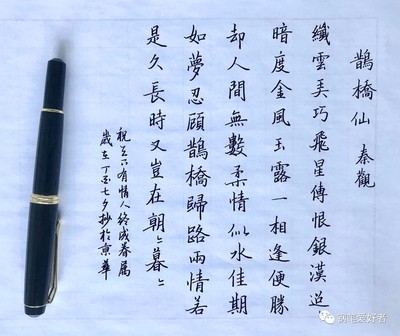 鵲橋仙 秦觀
纖雲弄巧飛星傳恨銀漢迢
暗度金風玉露一相逢便勝
却人間無數柔情似水佳期
如夢忍顧鵲橋歸路兩情若
是久長時又豈在朝〻暮〻
祝天下有情人終成眷屬
歲在丁酉七夕抄於京華
钢笔爱好者